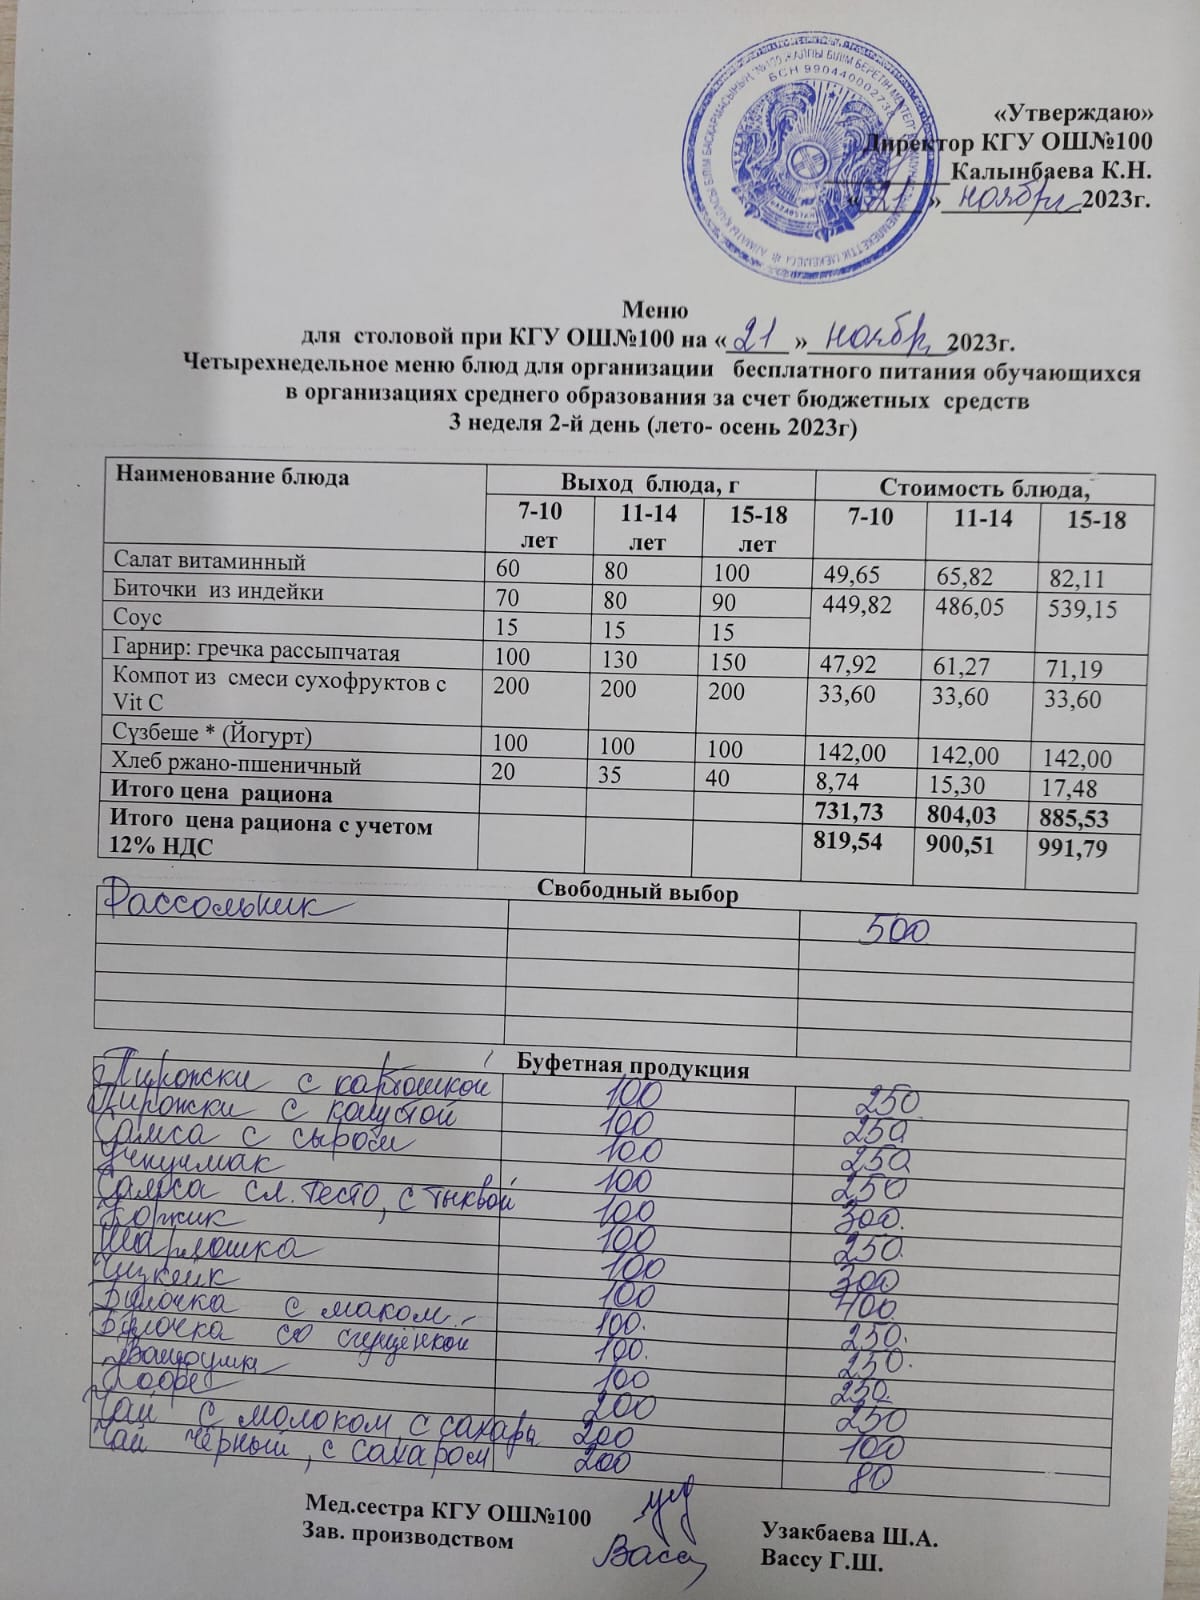 БСН 990440002734
«Утверждаю»
Директор КГУ ОШ№100
Калынбаева К.Н.
«21» ноября 2023г.
Меню
для столовой при КГУ ОШ№100 на «21» ноябр 2023г.
Четырехнедельное меню блюд для организации бесплатного питания обучающихся
в организациях среднего образования за счет бюджетных средств
3 неделя 2-й день (лето- осень 2023г)
Наименование блюда Выход блюда, г Стоимость блюда,
7-10 лет 11-14 лет 15-18 лет 7-10 11-14 15-18
Салат витаминный 60 80 100 49,65 65,82 82,11
Биточки из индейки 70 80 90 449,82 486,05 539,15
Соус 15 15 15
Гарнир: гречка рассыпчатая 100 130 150 47,92 61,27 71,19
Компот из смеси сухофруктов с 200 200 200 33,60 33,60 33,60
Vit C
Сүзбеше * (Йогурт) 100 100 100 142,00 142,00 142,00
Хлеб ржано-пшеничный 20 35 40 8,74 15,30 17,48
Итого цена рациона 731,73 804,03 885,53
Итого цена рациона с учетом 819,54 900,51 991,79
12% НДС
Свободный выбор
Рассольник 500
Буфетная продукция
Пирожки с картошкой 100 250
Пирожки с капустой 100 250
Самса с сыром 100 250
Учпучмак 100 250
Самса сл. тесто, с тыквой 100 300.
Коржик 100 250.
Шарлошка 100 300
Чизкейк 100 400.
Булочка с маком. 100. 250.
Булочка со сгущёнкой 100. 250.
Ватрушка 100 250.
Кофе 200 250
Чай с молоком, с сахара 200 100
Чай чёрный, с сахаром 200 80
Мед.сестра КГУ ОШ№100 Узакбаева Ш.А.
Зав. производством Васс Вассу Г.Ш.